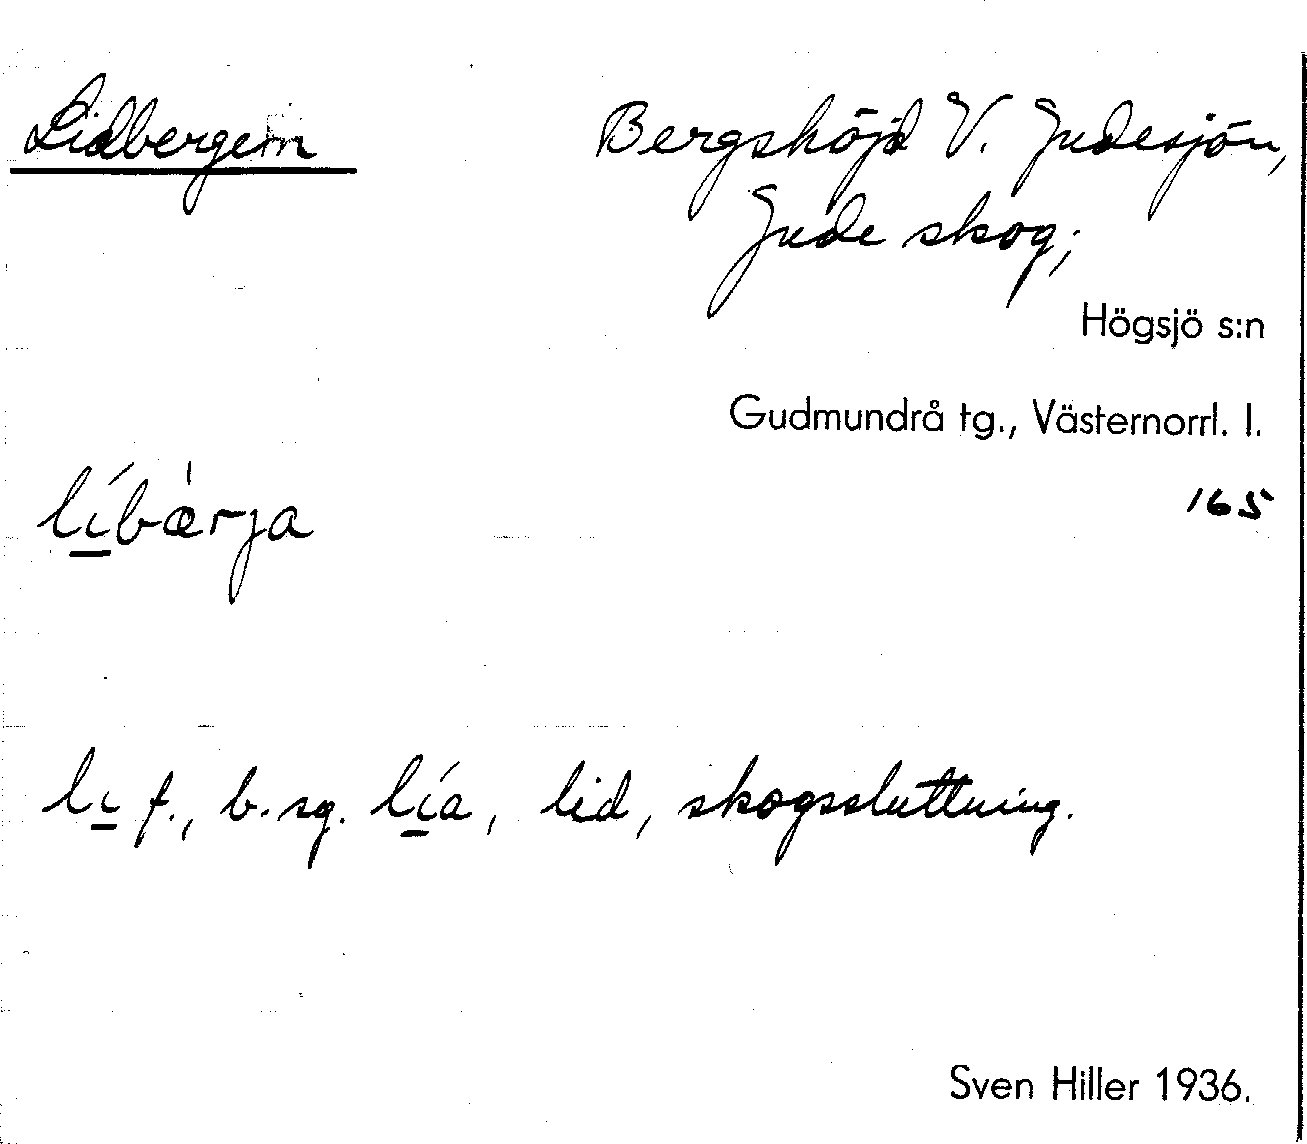 Lidbergen
Bergshöjd V. Gudesjön,
Gude skog;
Högsjö s:n
Gudmundrå tg., Västernorrl. l.
165
líbærja
li f., b. sg. lía, lid, skogssluttning.
Sven Hiller 1936.